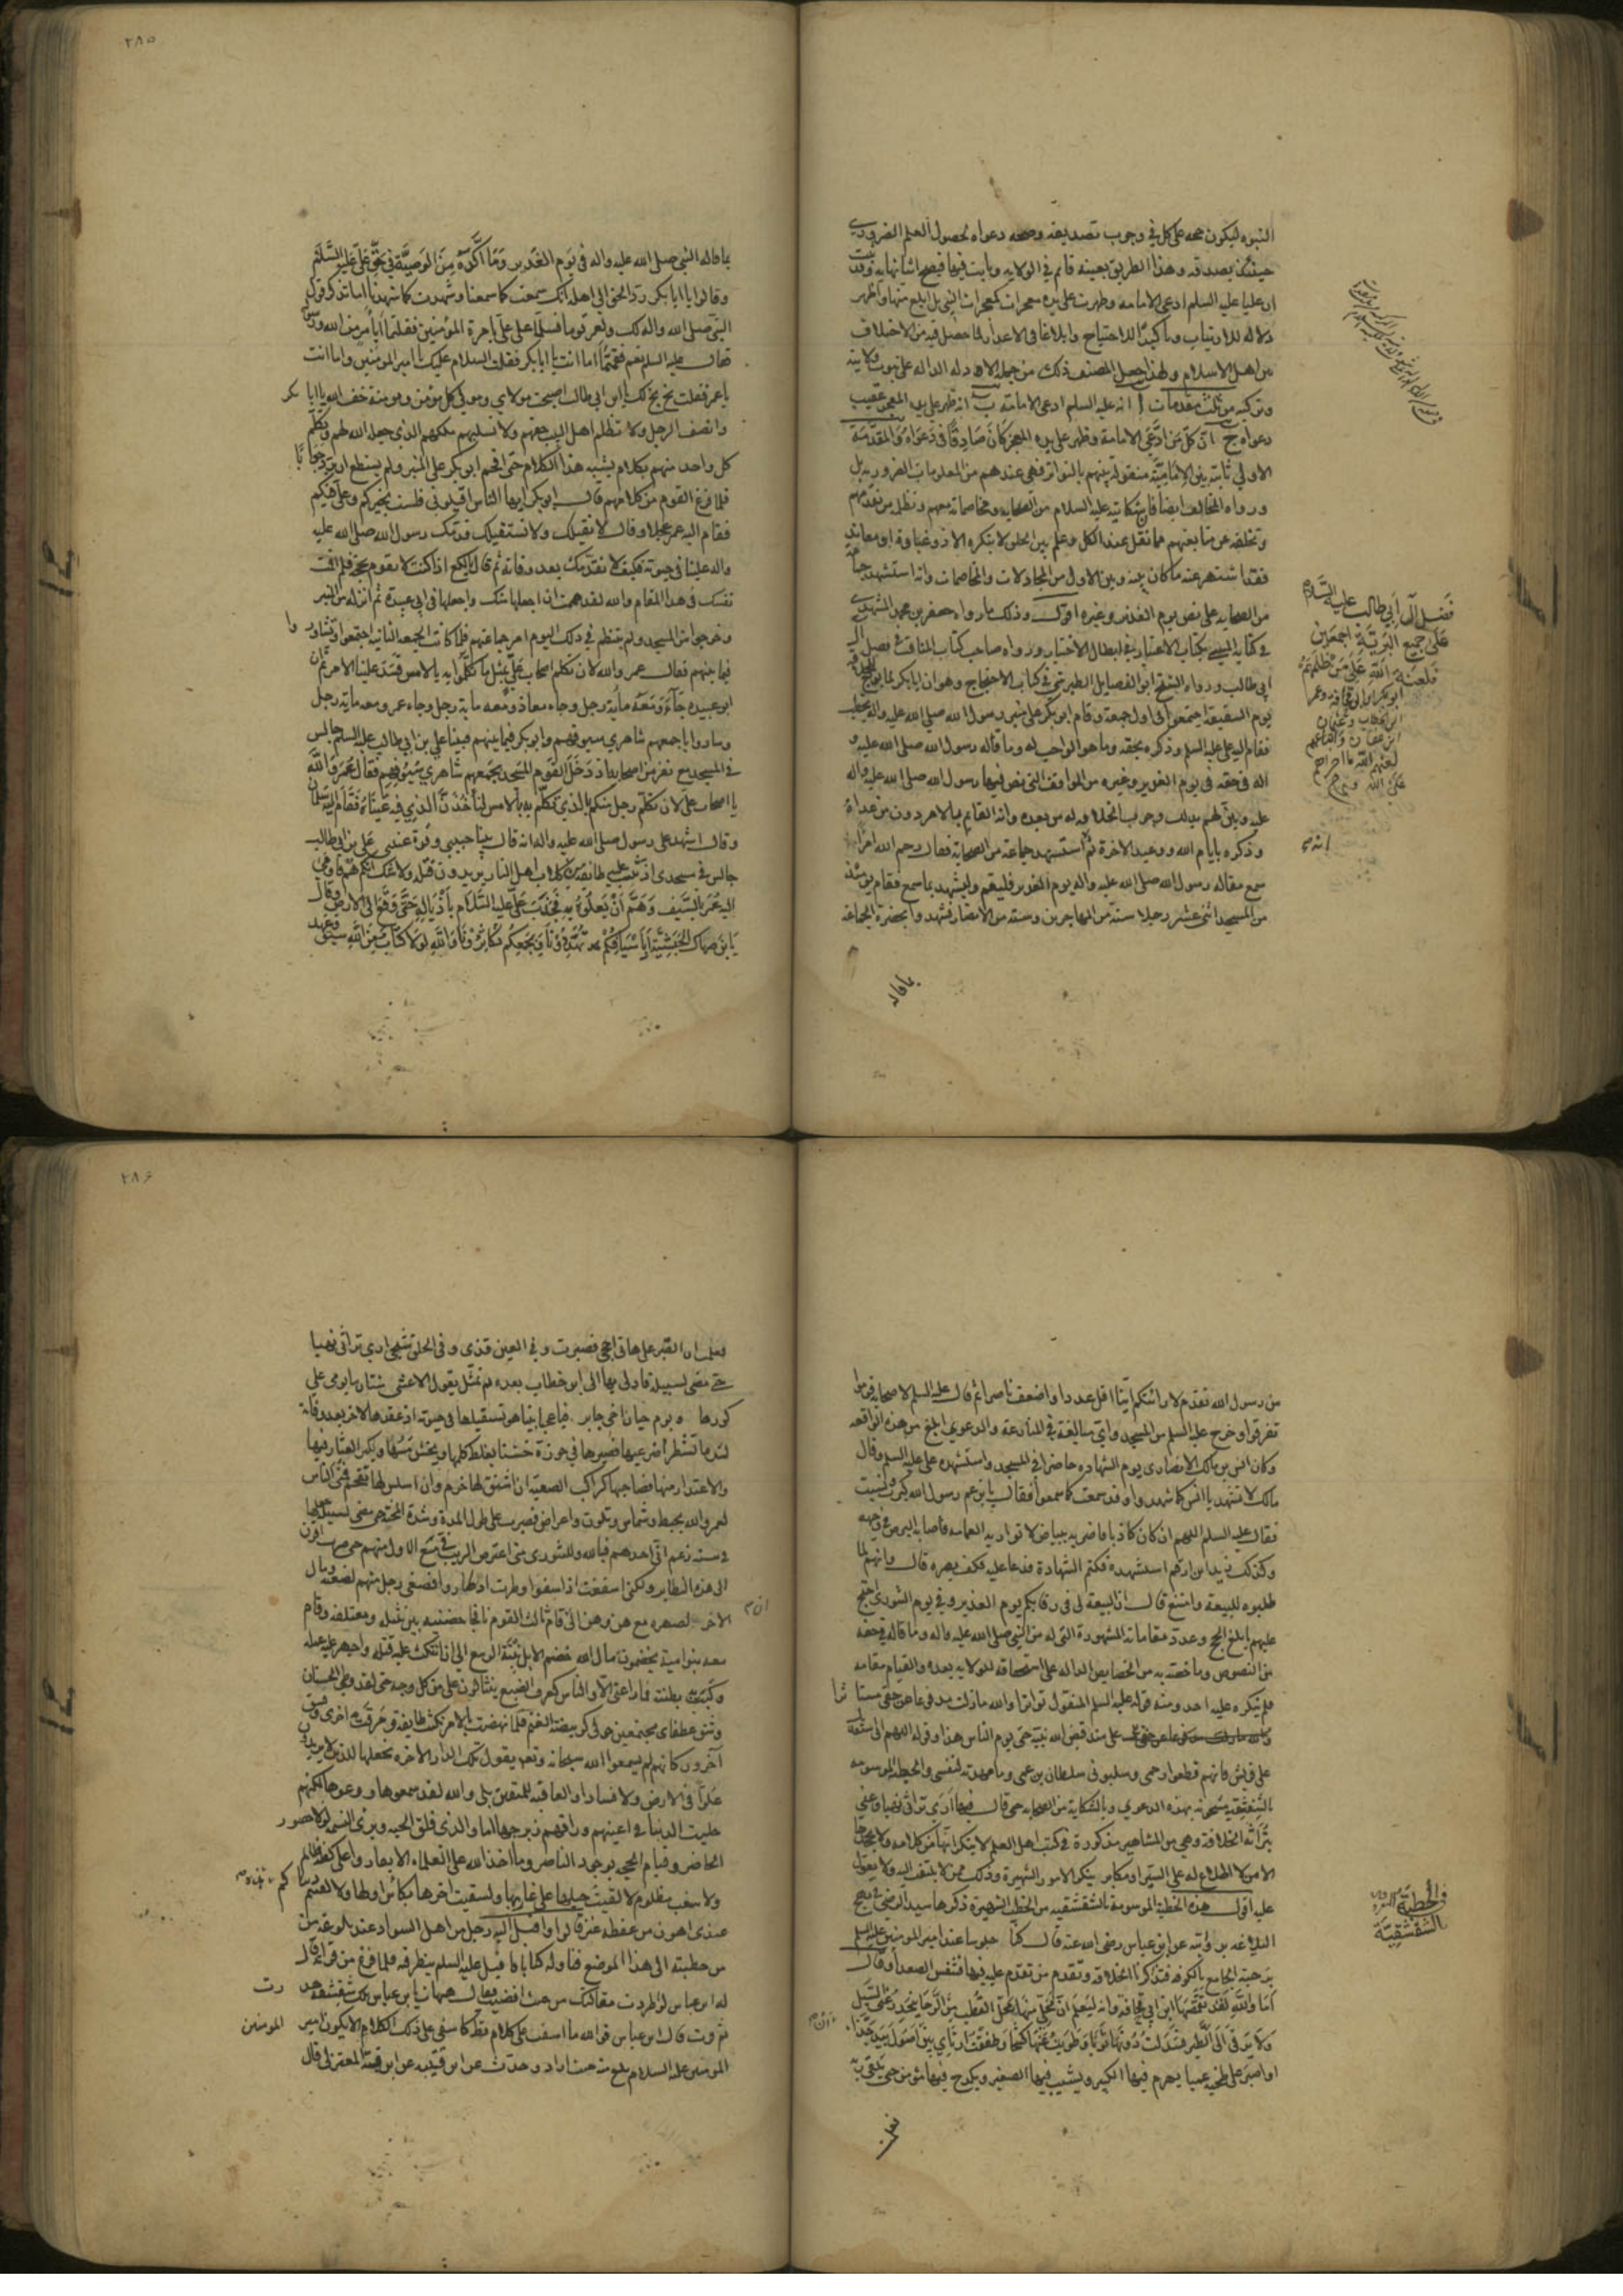 النبوه ليكون حجه على كل في وجوب تصديقه وصحه دعواه لحصول العلم الضروري
حينئذ بصدقه وهذا الطريق بعينه قائم في الولايه وثابت فيها فيصح اثباتها به وقد ثبت
ان عليا عليه السلم ادعى الامامه وظهرت على يده معجزات كمعجزات النبي بل ابلغ منها واظهر
دلاله للارتياب وتاكيدا للاحتياج وابلاغا في الاعذار لما حصل فيه من الاختلاف
من اهل الاسلام ولهذا جعل المصنف ذلك من جمله الادله الداله على ثبوت ولايته
وتركبه من ثلث مقدمات ا انه عليه السلم ادعى الامامة ب انه ظهر على يده المعجز عقيب
دعواه ج ان كل من ادعى الامامة وظهر على يده المعجز كان صادقا في دعواه والمقدمة
الاولى ثابتة بين الامامية منقولة بينهم بالتواتر فهي عندهم من المعلومات الضروريه بل
ورواه المخالف ايضا فان شكايته عليه السلام من الصحابه ومخاصماته معهم وتظلمه من تقدمهم
وتخلفه عن متابعتهم مما نقل عند الكل وعلم بين الخلق لا ينكره الا ذو غباوة او معاند
فقد اشتهر عنه ما كان بينه وبين الاول من المجادلات والمخاصمات وانه استشهد جماعة
من الصحابه على نص يوم الغدير وغيره اقول وذلك ما رواه جعفر بن محمد المشهدي
في كتابه المسمى بكتاب الاعتبار في ابطال الاختيار ورواه صاحب كتاب المناقب في فضل آل
ابي طالب ورواه الشيخ ابو الفضايل الطبرسي في كتاب الاحتجاج وهو ان ابا بكر لما بويع
يوم السقيفة اجتمعوا في اول جمعة وقام ابو بكر على منبر رسول الله صلى الله عليه واله يخطب
فقام اليه علي عليه السلم وذكره بحقه وما هو الواجب له وما قاله رسول الله صلى الله عليه و
اله في حقه في يوم الغدير وغيره من المواقف التي نص فيها رسول الله صلى الله عليه واله
عليه وبين لهم بذلك وجوب الخلافه له من بعده وانه القايم بالامر دون من عداه
وذكره بايام الله ووعيد الاخرة ثم استشهد جماعة من الصحابة فقال رحم الله امرأ
سمع مقاله رسول الله صلى الله عليه واله يوم الغدير فليقم وليشهد بما سمع فقام يومئذ
من المسجد اثنى عشر رجلا ستة من المهاجرين وستة من الانصار فشهدوا بحضرة الجماعة
بما قاله
فضل آل ابي طالب عليه السلام
على جميع البرية اجمعين
فلعنة الله على من ظلمهم
٢٨٥
بما قاله النبي صلى الله عليه واله في يوم الغدير وما اكده من الوصية في حق علي عليه السلم
وقالوا يا ابا بكر رد الحق الى اهله انك سمعت كما سمعنا وشهدت كما شهدنا اما تذكر قول
النبي صلى الله عليه واله لك ولعمر قوما فسلما على علي بامرة المؤمنين فقلتما أبأمر من الله ورسوله
فقال عليه السلم نعم فقمتما اما انت يا ابا بكر فقلت السلام عليك يا امير المؤمنين واما انت
يا عمر فقلت بخ بخ لك يا ابن ابي طالب اصبحت مولاي ومولى كل مؤمن ومومنة خف الله يا ابا بكر
وانصف الرجل ولا تظلم اهل البيت حقهم ولا تسلبهم ملكهم الذي جعله الله لهم وتكلم
كل واحد منهم بكلام يشبه هذا الكلام حتى افحم ابو بكر على المنبر ولم يستطع ان يرد جوابا
فلما فرغ القوم من كلامهم قال ابو بكر ايها الناس اقيلوني فلست بخيركم وعلي فيكم
فقام اليه عمر عجلا وقال لا نقيلك ولا نستقيلك قدمك رسول الله صلى الله عليه
واله علينا في حيوته فكيف لا نقدمك بعد وفاته ثم قال يا لكع اذا كنت لا تقوم بحجة فلم اقمت
نفسك في هذا المقام والله لقد هممت ان اجعلها منك واجعلها في ابي عبيدة ثم انزله من المنبر
وخرجوا من المسجد ولم ينتظم في ذلك اليوم امر جماعتهم فلما كانت الجمعه الثانيه اجتمعوا وتشاوروا
فيما بينهم فقال عمر والله لان تكلم اصحاب علي بمثل ما تكلموا به بالامس فسد علينا الامر ثم ان
ابو عبيده جاء ومعه مأية رجل وجاء معاذ ومعه ماية رجل وجاء عمر ومعه ماية رجل
وساروا باجمعهم شاهري سيوفهم وابو بكر فيما بينهم فبينا علي بن ابي طالب عليه السلم جالس
في المسجد مع نفر من اصحابه اذ دخل القوم المسجد بجمعهم شاهري سيوفهم فقال عمر والله
يا اصحاب علي لان تكلم رجل منكم بالذي تكلم به بالامس لنأخذن الذي فيه عيناه فقام اليه سلمان
وقال اشهد على رسول صلى الله عليه واله انه قال بينا حبيبي وقرة عيني علي بن ابي طالب
جالس في مسجدي اذ تثب عليه طائفة من كلاب اهل النار يريدون قتله ولا شك انكم هم فاومى
اليه عمر بالسيف وهم ان يعلوه به فجذب علي عليه السلام باذياله حتى وقع الى الارض وقال
يا ابن صهاك الحبشية أبأسيافكم تهددونا وبجمعكم تكاثرونا والله لولا كتاب من الله سبق وعهد
من رسول الله تقدم لاريتكم اينا اقل عددا واضعف ناصرا ثم قال عليه السلم لاصحابه قوموا
تفرقوا وخرج عليه السلم من المسجد واي مبالغة في المنازعة والدعوى ابلغ من هذه الواقعه
وكان انس بن مالك الانصاري يوم الشهاده حاضرا في المسجد واستشهده علي عليه السلم وقال
مالك لا تشهد يا انس كما شهدوا وقد سمعت كما سمعوا فقال يا بن عم رسول الله كبرت ونسيت
فقال عليه السلم اللهم ان كان كاذبا فاضربه ببياض لا تواريه العمامه فاصابه البرص في وجهه
وكذلك زيد ابن ارقم استشهده فكتم الشهادة فدعا عليه فكف بصره قال وانهم لما
طلبوه للبيعة وامتنع قال ان البيعة لي في رقابكم يوم الغدير وفي يوم الشورى احتج
عليهم بابلغ الحجج وعدد مقاماته المشهورة التي له من النبي صلى الله عليه واله وما قاله في حقه
من النصوص وما خصه به من الخصايص الداله على استحقاقه للولايه بعده والقيام مقامه
فلم ينكره عليه احد ومنه قوله عليه السلم المنقول تواترا والله ما زلت مدفوعا عن حقي مستاثرا
علي منذ قبض الله نبيه حتى يوم الناس هذا وقوله اللهم اني استعديك
على قريش فانهم قطعوا رحمي وسلبوني سلطان بن عمي وما مهدته لنفسي والخطبه الموسومه
بالشقشقيه مشحونه بهذه الدعوى وبالشكاية من الصحابه حتى قال فيها ارى تراثي نهبا وعنى
بتراثه الخلافة وهي من المشاهير مذكورة في كتب اهل العلم لا ينكر انها من كلامه ولا يجحدها
الا من لا اطلاع له على السير او مكابر ينكر الامور الشهيرة وذلك ممن لا يلتفت اليه ولا يعول
عليه اقول هذه الخطبة الموسومة بالشقشقيه من الخطب الشهيرة ذكرها سيد الرضي في نهج
البلاغه بروايته عن ابن عباس رضي الله عنه قال كنا جلوسا عند امير المومنين عليه السلم
برحبة الجامع بالكوفه فتذاكرنا الخلافه وتقدم من تقدم عليه فيها فتنفس الصعدا وقال
أما والله لقد تقمصها ابن ابي قحافة وانه ليعلم ان محلي منها محل القطب من الرحا ينحدر عني السيل
ولا يرقى الي الطير فسدلت دونها ثوبا وطويت عنها كشحا وطفقت ارتأي بين ان اصول بيد جذا
او اصبر على طخيه عميا يهرم فيها الكبير ويشيب فيها الصغير ويكدح فيها مؤمن حتى يلقى ربه
في الخطبة
الشقشقية
٢٨٦
فعلمت ان الصبر على هاتا احجى فصبرت وفي العين قذى وفي الحلق شجى ارى تراثي نهبا
حتى مضى لسبيله فادلى بها الى ابن خطاب بعده ثم تمثل بقول الاعشى شتان ما يومي على
كورها ويوم حيان اخي جابر فيا عجبا بينا هو يستقيلها في حيوته اذ عقدها لاخر بعد وفاته
لشد ما تشطرا ضرعيها فصيرها في حوزة خشنا يغلظ كلمها ويخشن مسها ويكثر العثار فيها
والاعتذار منها فصاحبها كراكب الصعبة ان اشنق لها خرم وان اسلس لها تقحم فمني الناس
لعمر والله بخبط وشماس وتلون واعراض فصبرت على طول المدة وشدة المحنة حتى مضى لسبيله جعلها
في ستة زعم اني احدهم فيا لله وللشورى متى اعترض الريب في مع الاول منهم حتى صرت اقرن
الى هذه النظاير ولكني اسففت اذ اسفوا وطرت اذ طاروا فصغى رجل منهم لضغنه ومال
الاخر لصهره مع هن وهن الى ان قام ثالث القوم نافجا حضنيه بين نثيله ومعتلفه وقام
معه بنو امية يخضمون مال الله خضم الابل نبتة الربيع الى ان انتكث عليه فتله واجهز عليه عمله
وكبت به بطنته فما راعني الا والناس كعرف الضبع ينثالون علي من كل وجه حتى لقد وطي الحسنان
وشق عطفاي مجتمعين حولي كربيضة الغنم فلما نهضت بالامر نكثت طايفة ومرقت اخرى وفسق
آخرون كانهم لم يسمعوا الله سبحانه وتعه يقول تلك الدار الاخره نجعلها للذين لا يريدون
علوا في الارض ولا فسادا والعاقبة للمتقين بلى والله لقد سمعوها ووعوها لكنهم
حليت الدنيا في اعينهم وراقهم زبرجها اما والذي فلق الحبه وبرئ النسمه لولا حضور
الحاضر وقيام الحجه بوجود الناصر وما اخذ الله على العلماء الا يقاروا على كظة ظالم
ولا سغب مظلوم لالقيت حبلها على غاربها ولسقيت اخرها بكأس اولها ولالفيتم دنياكم
عندي اهون من عفطة عنز قالوا واقبل اليه رجل من اهل السواد عند بلوغه من
من خطبته الى هذا الموضع فناوله كتابا قيل عليه السلم ينظر فيه فلما فرغ من قراءته قال
له ابن عباس لو اطردت مقالتك من حيث افضيت فقال هيهات يا بن عباس تلك شقشقة هدرت
ثم قرت قال ابن عباس فوالله ما اسفت على كلام قط كاسفي على ذلك الكلام الا يكون امير المومنين
المومنين عليه السلام بلغ منه حيث اراد وحدث عن ابن قتيبه المعتزلي قال